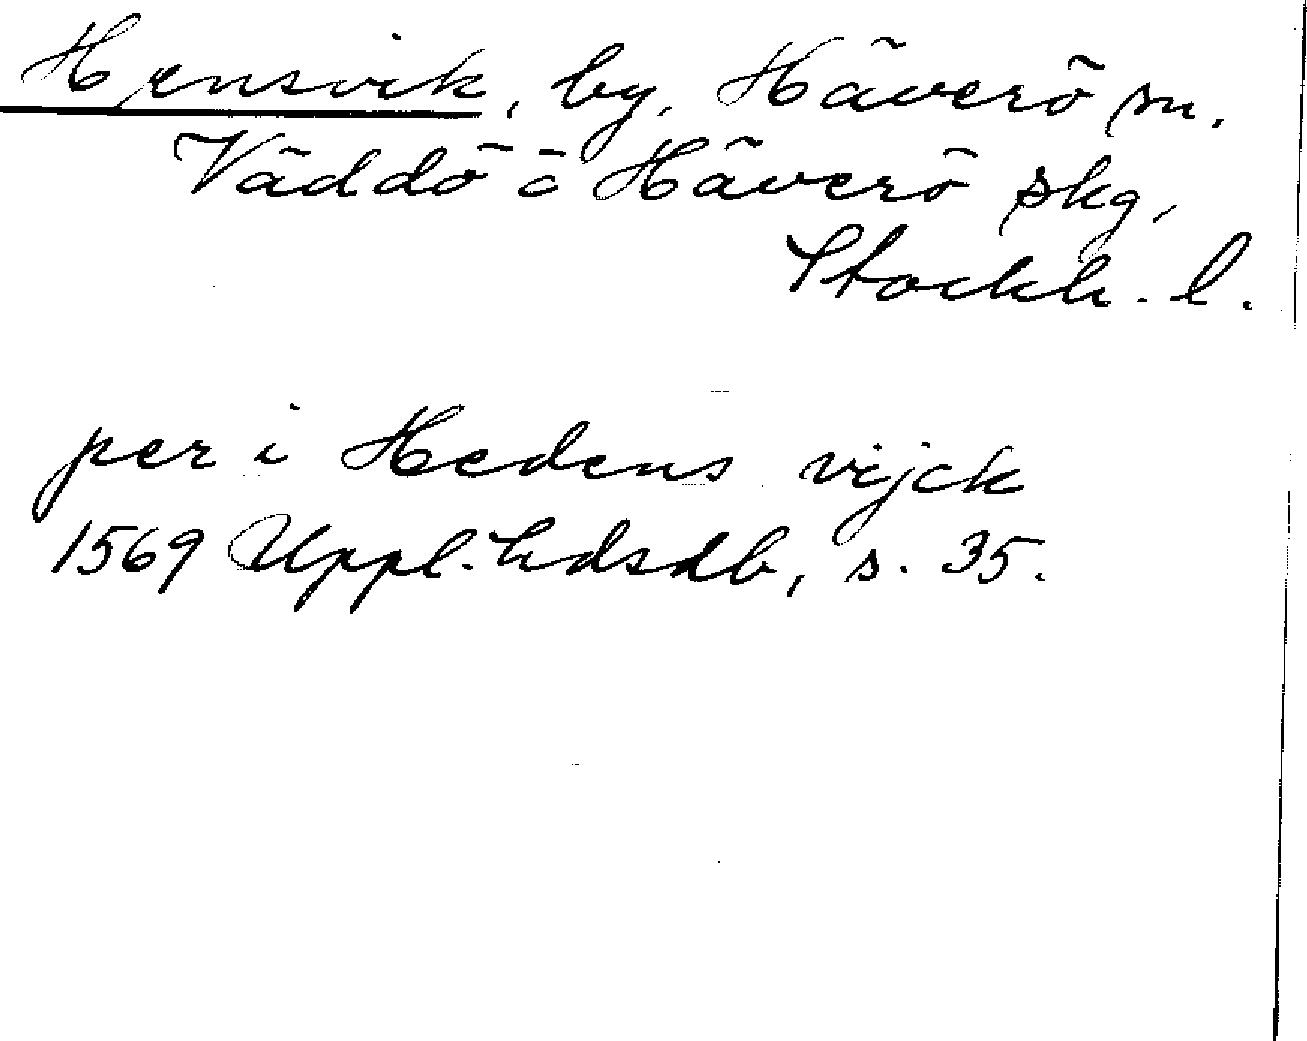 Hensvik, by, Häverö sn.
Väddö o Häverö skg,
Stockh. l.
per i Hedens vijck
1569 Uppl. hdsdb, s. 35.